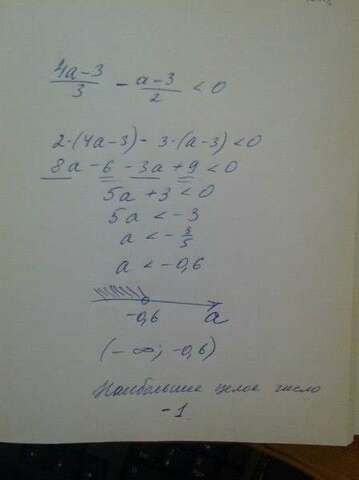 (4a-3)/3 - (a-3)/2 < 0
2·(4a-3) - 3·(a-3) < 0
8a - 6 - 3a + 9 < 0
5a + 3 < 0
5a < -3
a < -3/5
a < -0,6
-0,6 a
(-∞; -0,6)
Наибольшее целое число
-1